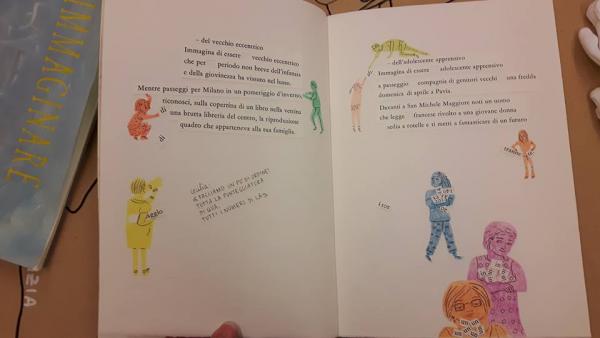 IMMAGINARE
– del vecchio eccentrico
Immagina di essere vecchio eccentrico
che per periodo non breve dell'infanzia
e della giovinezza ha vissuto nel lusso.
Mentre passeggi per Milano in un pomeriggio d'inverno,
riconosci, sulla copertina di un libro nella vetrina
una brutta libreria del centro, la riproduzione
quadro che apparteneva alla sua famiglia.
di
di
aggio
FACCIAMO UN PO' DI ORDINE!
TUTTA LA PUNTEGGIATURA
DI QUA,
TUTTI I NUMERI DI LÀ
– dell'adolescente apprensivo
Immagina di essere adolescente apprensivo
a passeggio compagnia di genitori vecchi una fredda
domenica di aprile a Pavia.
Davanti a San Michele Maggiore noti un uomo
che legge francese rivolto a una giovane donna
sedia a rotelle e ti metti a fantasticare di un futuro
di
un
un
un
un